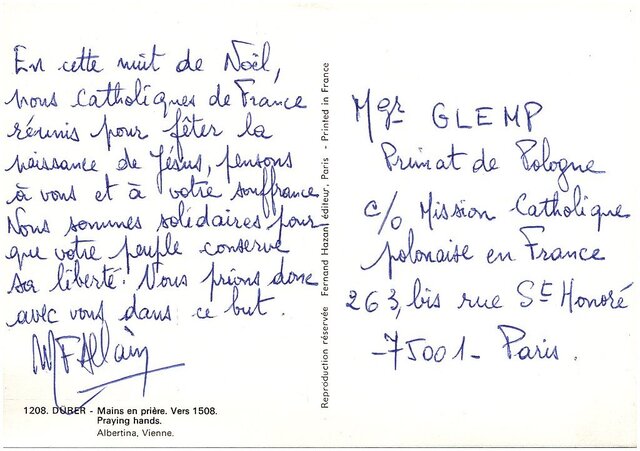 En cette nuit de Noël,
nous Catholiques de France
réunis pour fêter la
naissance de Jésus, pensons
à vous et à votre souffrance.
Nous sommes solidaires pour
que votre peuple conserve
sa liberté. Nous prions donc
avec vous dans ce but.
MFAllain
1208. DÜRER - Mains en prière. Vers 1508.
Praying hands.
Albertina, Vienne.
Reproduction réservée Fernand Hazan éditeur, Paris - Printed in France
Mgr GLEMP
Primat de Pologne
c/o Mission Catholique
polonaise en France
263, bis rue St Honoré
-75001- Paris.